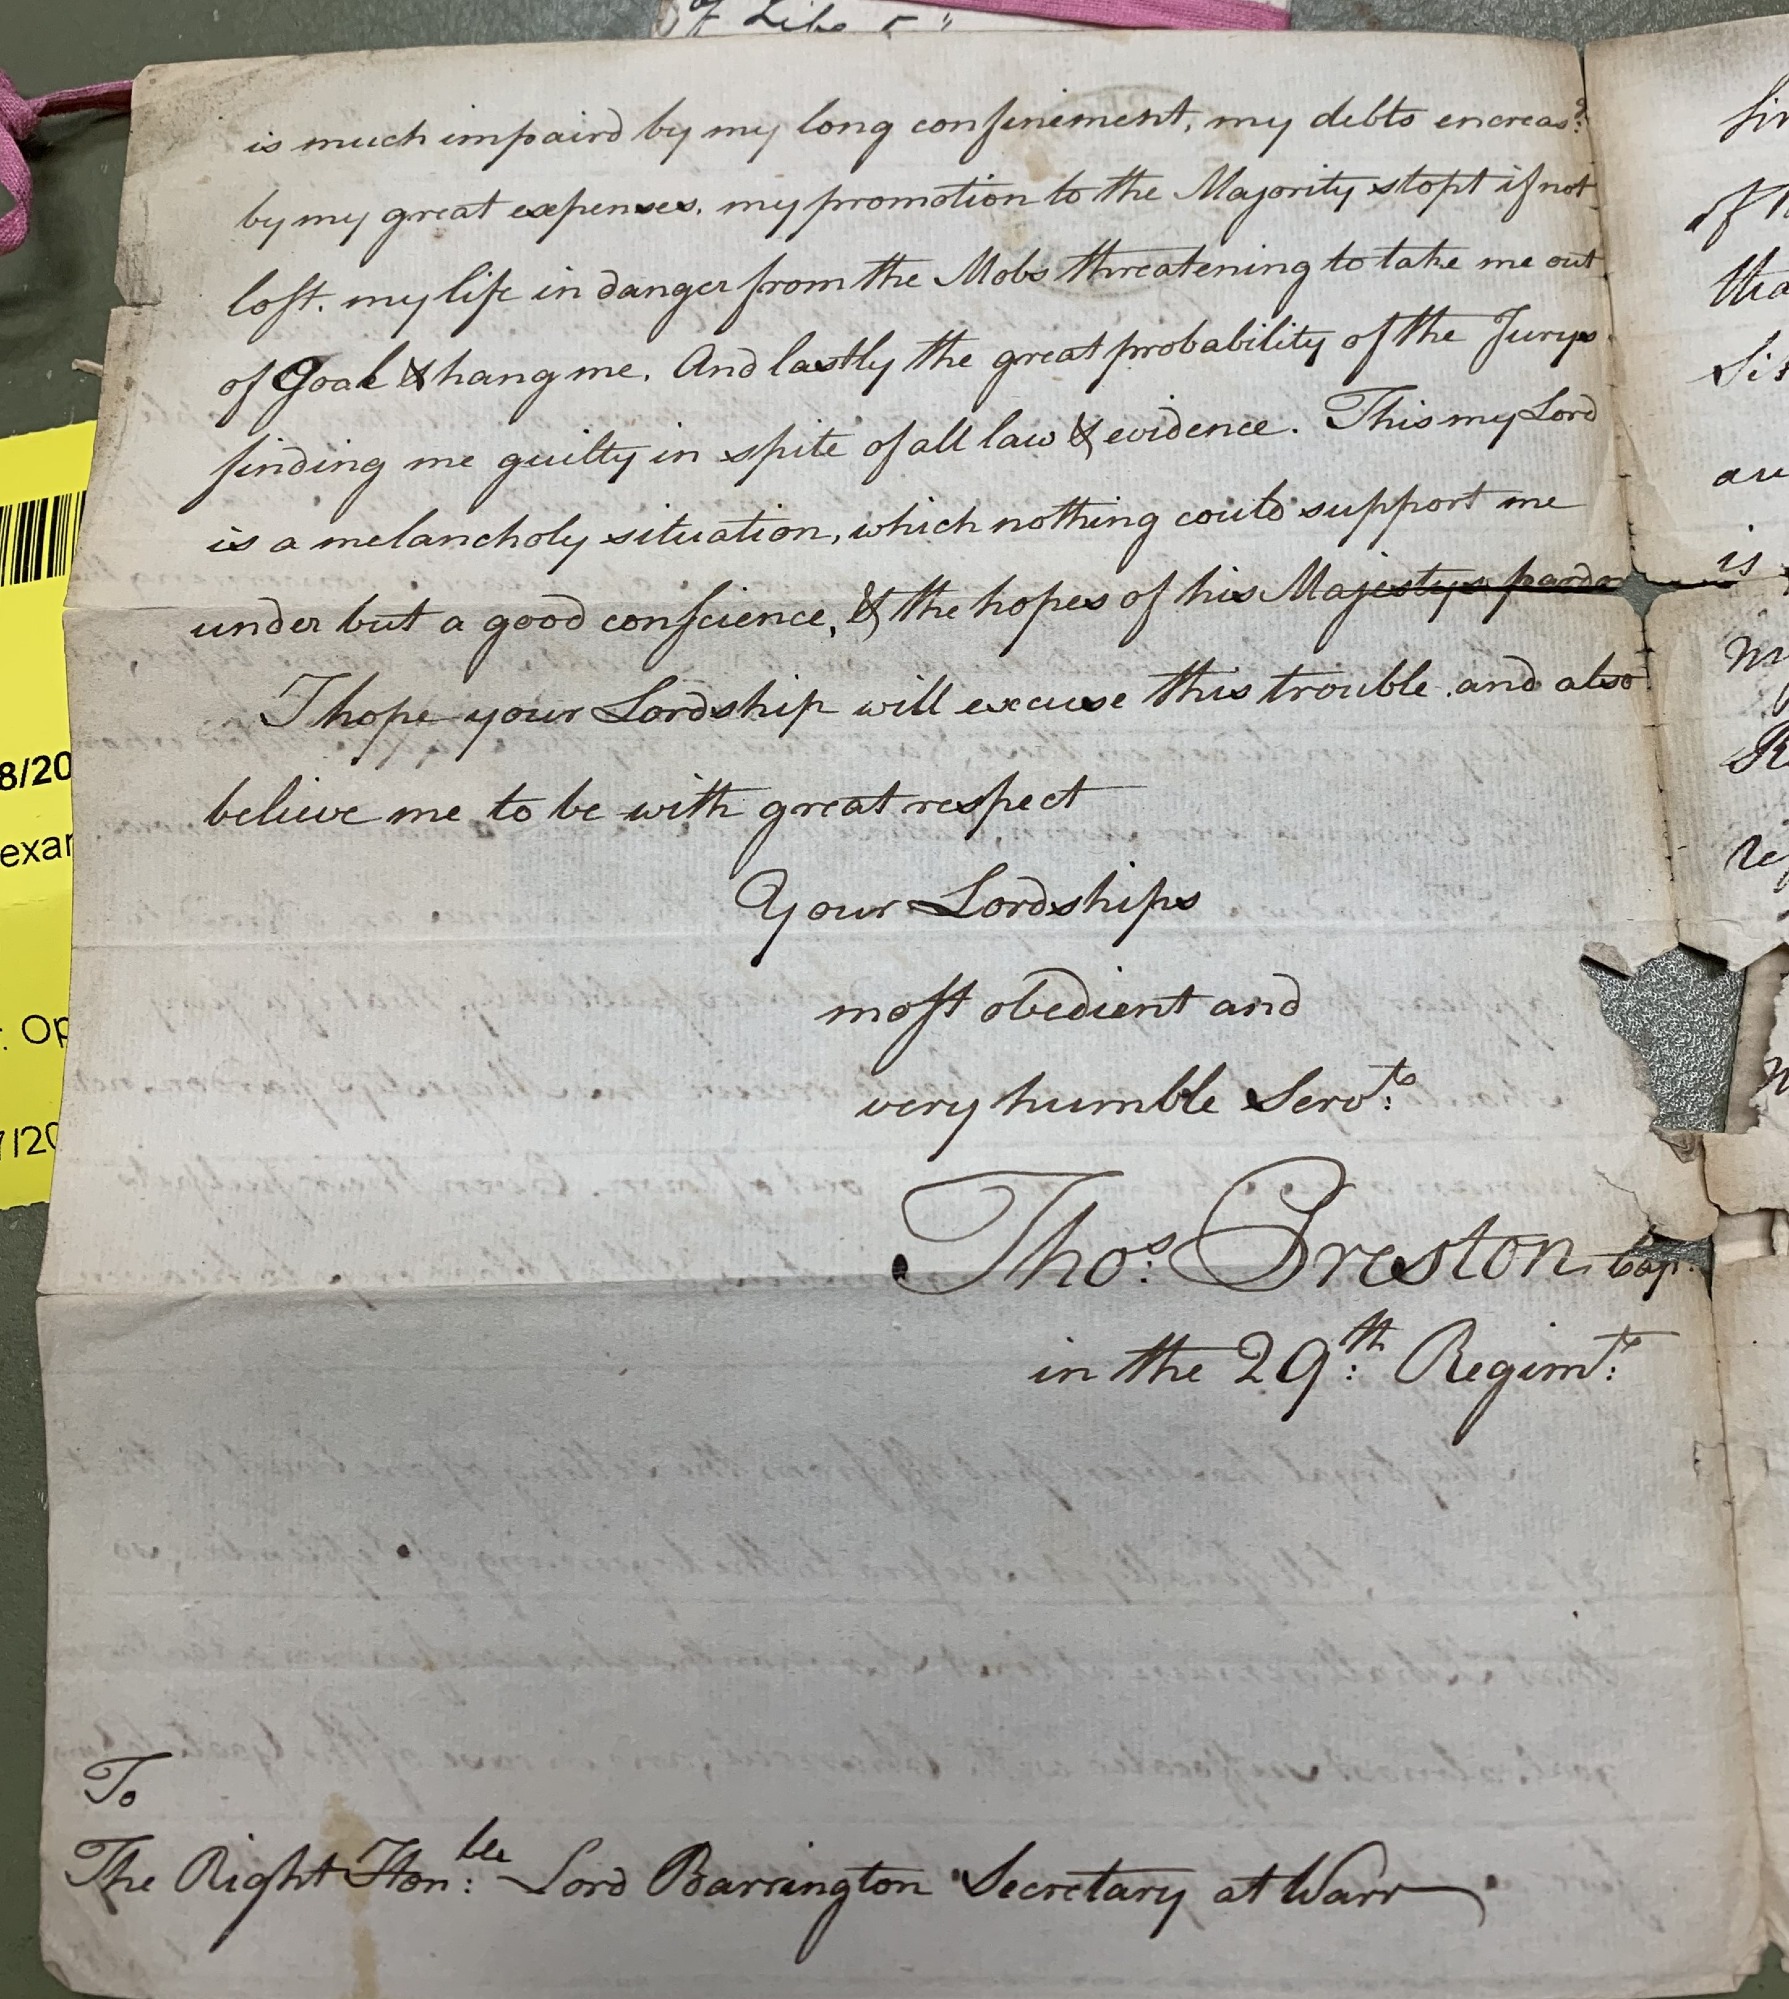 of Libe
is much impaird by my long confinement, my debts encreas:d
by my great expenses, my promotion to the Majority stopt if not
lost. my life in danger from the Mobs threatening to take me out
of Goal & hang me. And lastly the great probability of the Jurys
finding me guilty in spite of all law & evidence. This my Lord
is a melancholy situation, which nothing could support me
under but a good conscience, & the hopes of his Majestys pardon
I hope your Lordship will excuse this trouble and also
believe me to be with great respect
Your Lordships
most obedient and
very humble Serv:ts
Tho:s Preston Cap:
in the 29:th Regim:t
To
The Right Hon:ble Lord Barrington Secretary at Warr
8/20
exar
: Op
7/20
of
tha
Sis
au
is